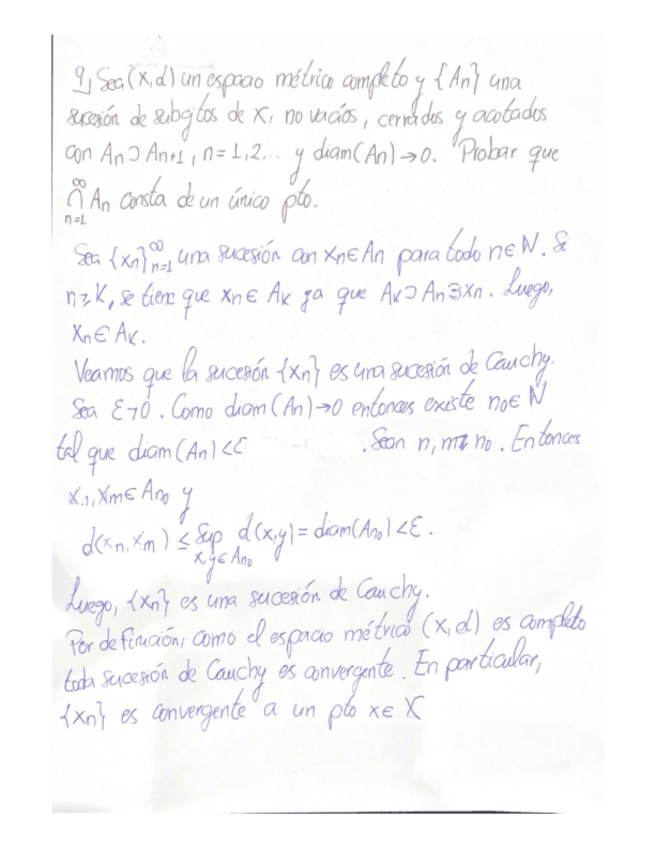 9, Sea (X,d) un espacio métrico completo y {An} una
sucesión de subcjtos de X, no vacíos, cerrados y acotados
con An⊃An+1, n=1,2,... y diam(An)→0. Probar que
∞⋂n=1 An consta de un único pto.
Sea {xn}∞n=1 una sucesión con xn∈An para todo n∈N. Si
n≥K, se tiene que xn∈AK ya que AK⊃An∋xn. Luego,
xn∈AK.
Veamos que la sucesión {xn} es una sucesión de Cauchy.
Sea ε>0. Como diam(An)→0 entonces existe n0∈N
tal que diam(An)<ε . Sean n, m≥n0. Entonces
xn,xm∈An0 y
d(xn,xm) ≤ sup x,y∈An0 d(x,y)=diam(An0)<ε.
Luego, {xn} es una sucesión de Cauchy.
Por definición, como el espacio métrico (X,d) es completo
toda sucesión de Cauchy es convergente. En particular,
{xn} es convergente a un pto x∈X